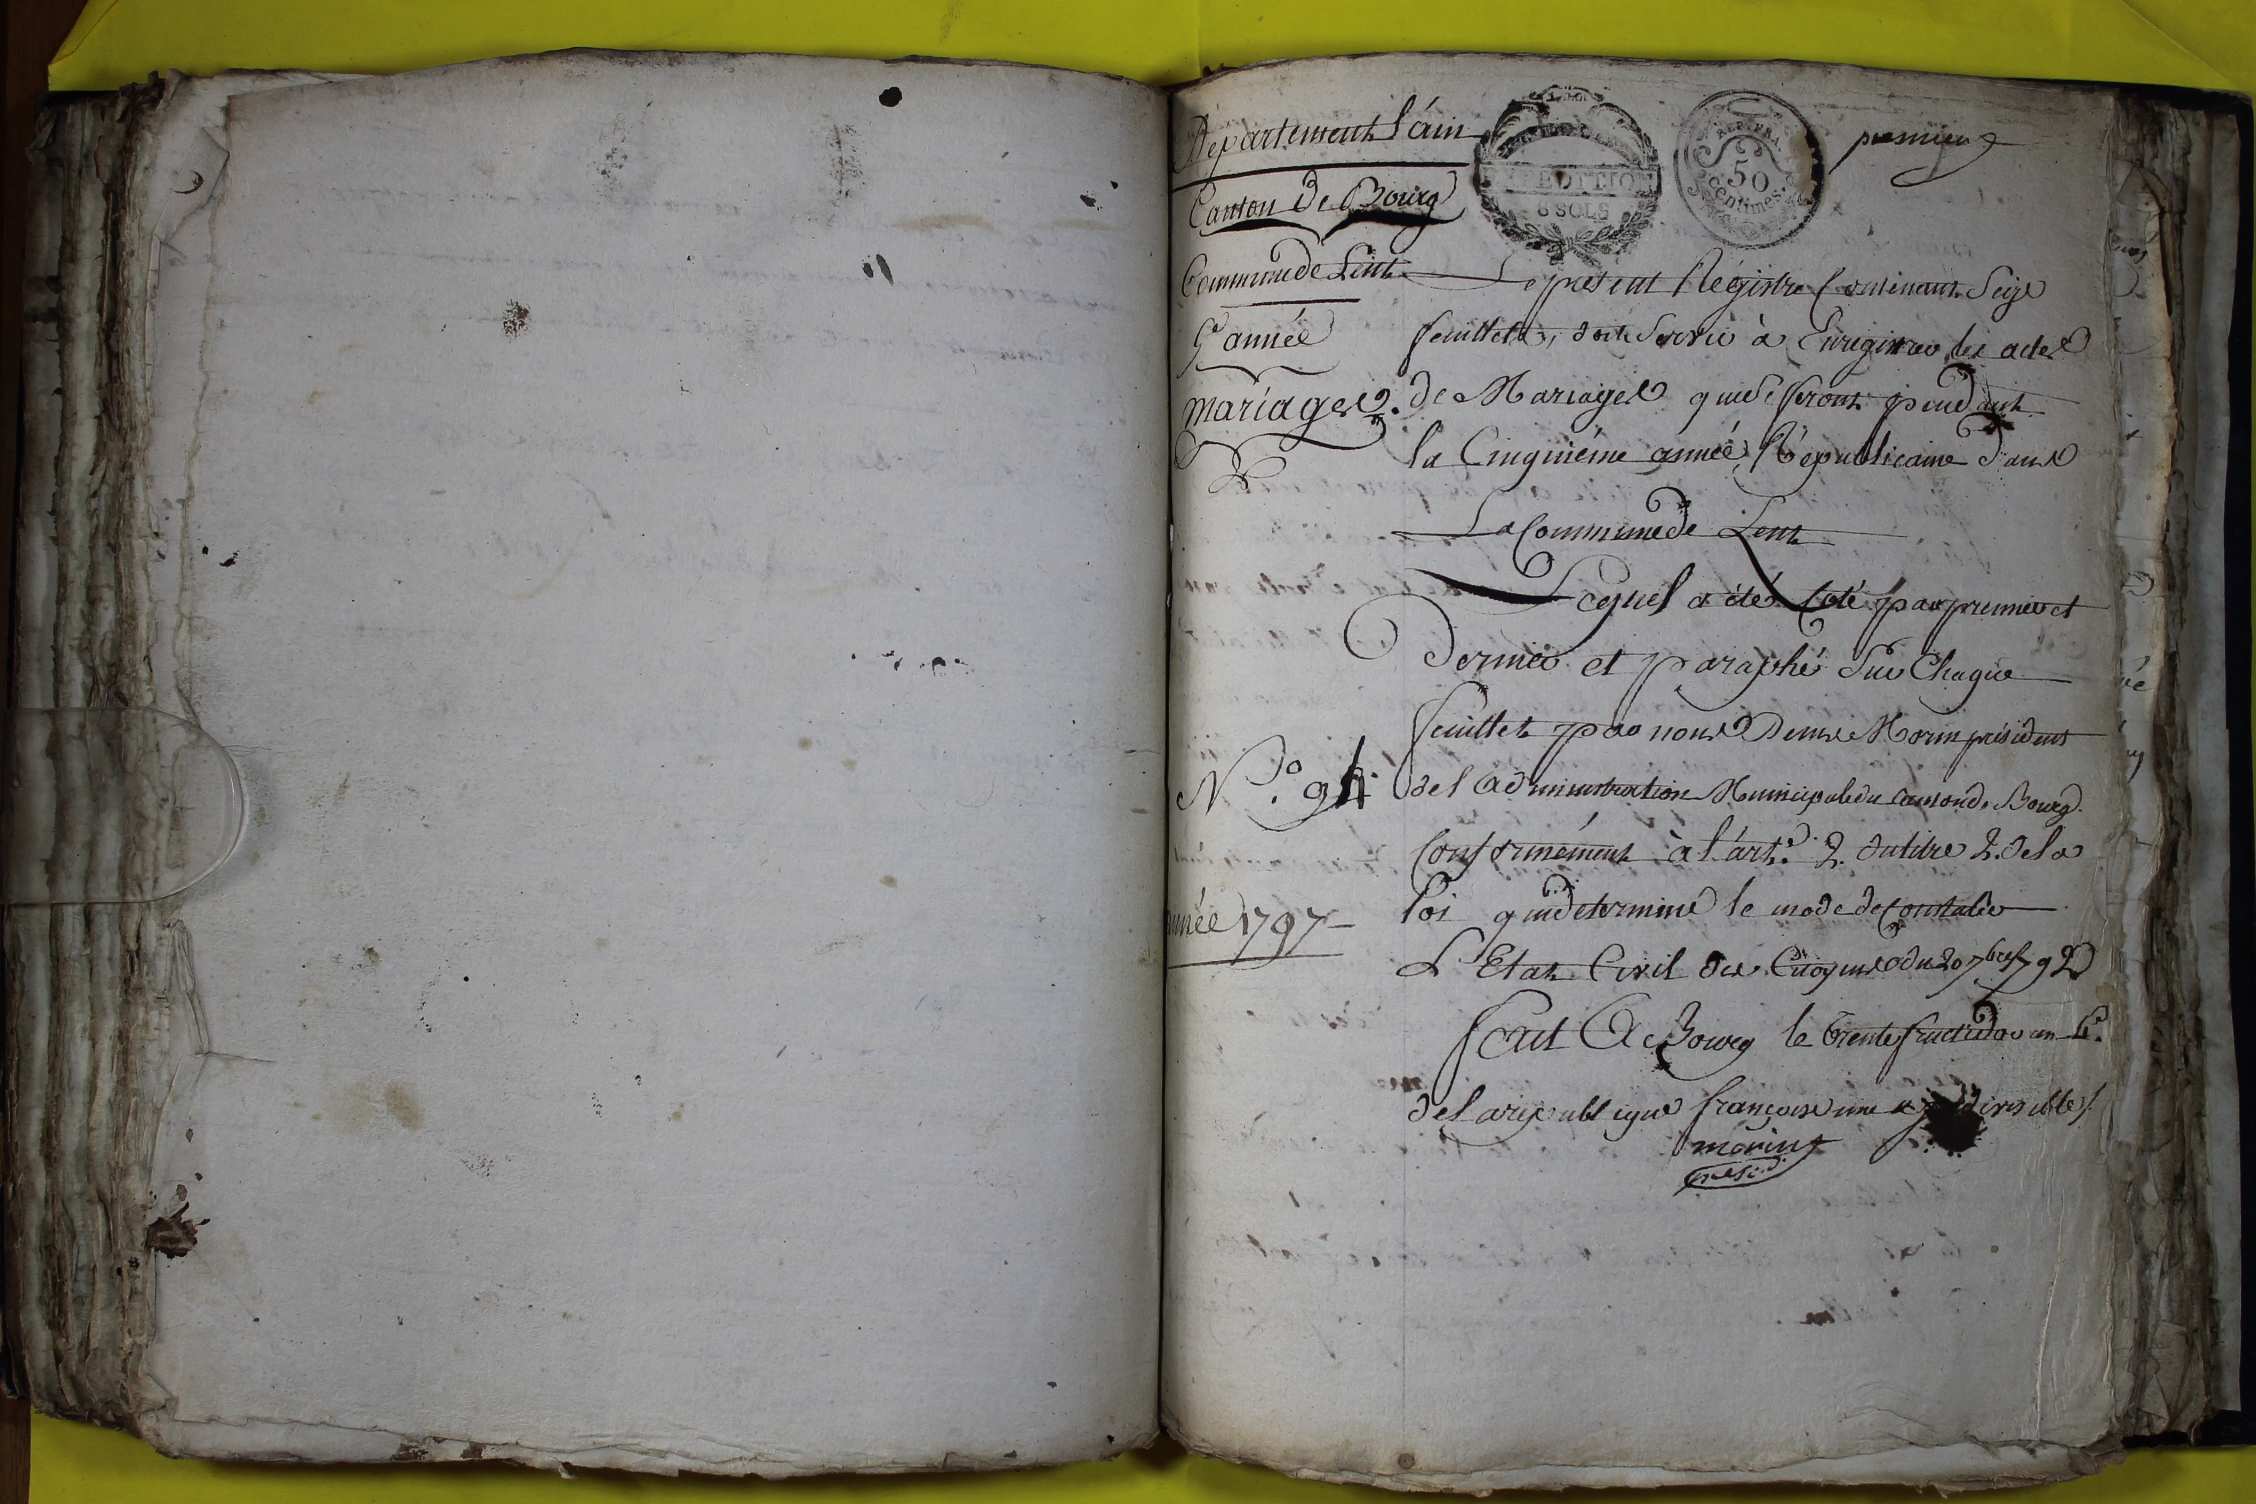 Département l'ain
EXPEDITION
8 SOLS
REP. FRA.
50
centimes
premier
Canton De Bourg
Commune de Lent
5e année
mariages.
Le présent Régistre Contenant Seize
feuillets, doit Servir à Enregistrer les actes
de Mariages qui se feront pendant
la Cinquiéme année Républicaine dans
La Commune de Lent
Lequel a été Coté par premier et
Dernier et paraphé Sur Chaque
feuillet par nous Denis Morin président
N.o 94
de l'administration Municipale du canton de Bourg
Conformément à l'art.e 2. du titre 2. de la
année 1797
loi qui determine le mode de Constater
L'Etat Civil des Citoyens du 20 7bre 1792
Fait A Bourg le trente fructidor an 4e.
de la république françoise une et indivisible/.
morin
presid.